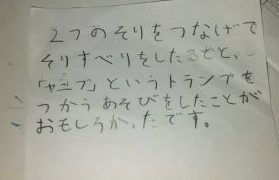 2つのそりをつなげて
そりすべりをしたるどと、
「ヤニブ」というトランプを
つかうあそびをしたことが
おもしろかったです。